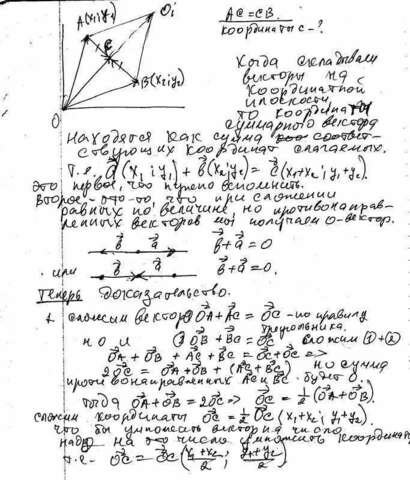 A(x₁;y₁)
O₁
C
B(x₂;y₂)
O
AC=CB.
координаты C-?
Когда складываем
векторы на
координатной
плоскости,
то координаты
суммарного вектора
находятся как сумма соответ-
ствующих координат слагаемых.
Т.е. a⃗(x₁;y₁)+b⃗(x₂;y₂)=c⃗(x₁+x₂;y₁+y₂).
Это первое, что нужно вспомнить.
Второе - это то, что при сложении
равных по величине, но противонаправ-
ленных векторов мы получаем 0-вектор.
b⃗ a⃗ b⃗+a⃗=0
или b⃗ a⃗ b⃗+a⃗=0.
Теперь доказательство.
сложим вектора OA⃗+AC⃗=OC⃗ - по правилу
треугольника.
но и OB⃗+BC⃗=OC⃗ сложим 1+2
OA⃗+OB⃗+AC⃗+BC⃗=OC⃗+OC⃗=>
2OC⃗=OA⃗+OB⃗+(AC⃗+BC⃗) но сумма
противонаправленных AC и BC будет 0.
Тогда OA⃗+OB⃗=2OC⃗=> OC⃗=½(OA⃗+OB⃗).
сложим координаты OC⃗=½OC⃗(x₁+x₂; y₁+y₂).
что бы умножить вектор на число
надо на это число умножить координаты
т.е. OC⃗=OC⃗(x₁+x₂/2; y₁+y₂/2)